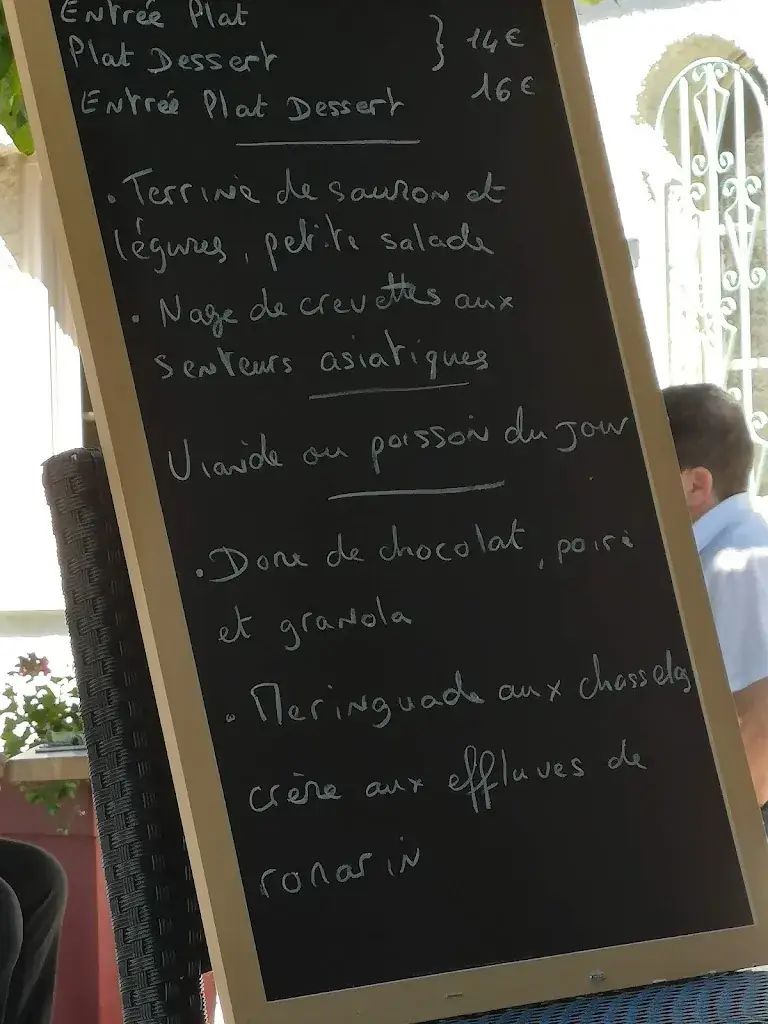 Entrée Plat
Plat Dessert } 14€
Entrée Plat Dessert 16€
• Terrine de saumon et
légumes, petite salade
• Nage de crevettes aux
senteurs asiatiques
Viande ou poisson du jour
• Dome de chocolat, poire
et granola
• Meringuade aux chasselas
crème aux effluves de
romarin